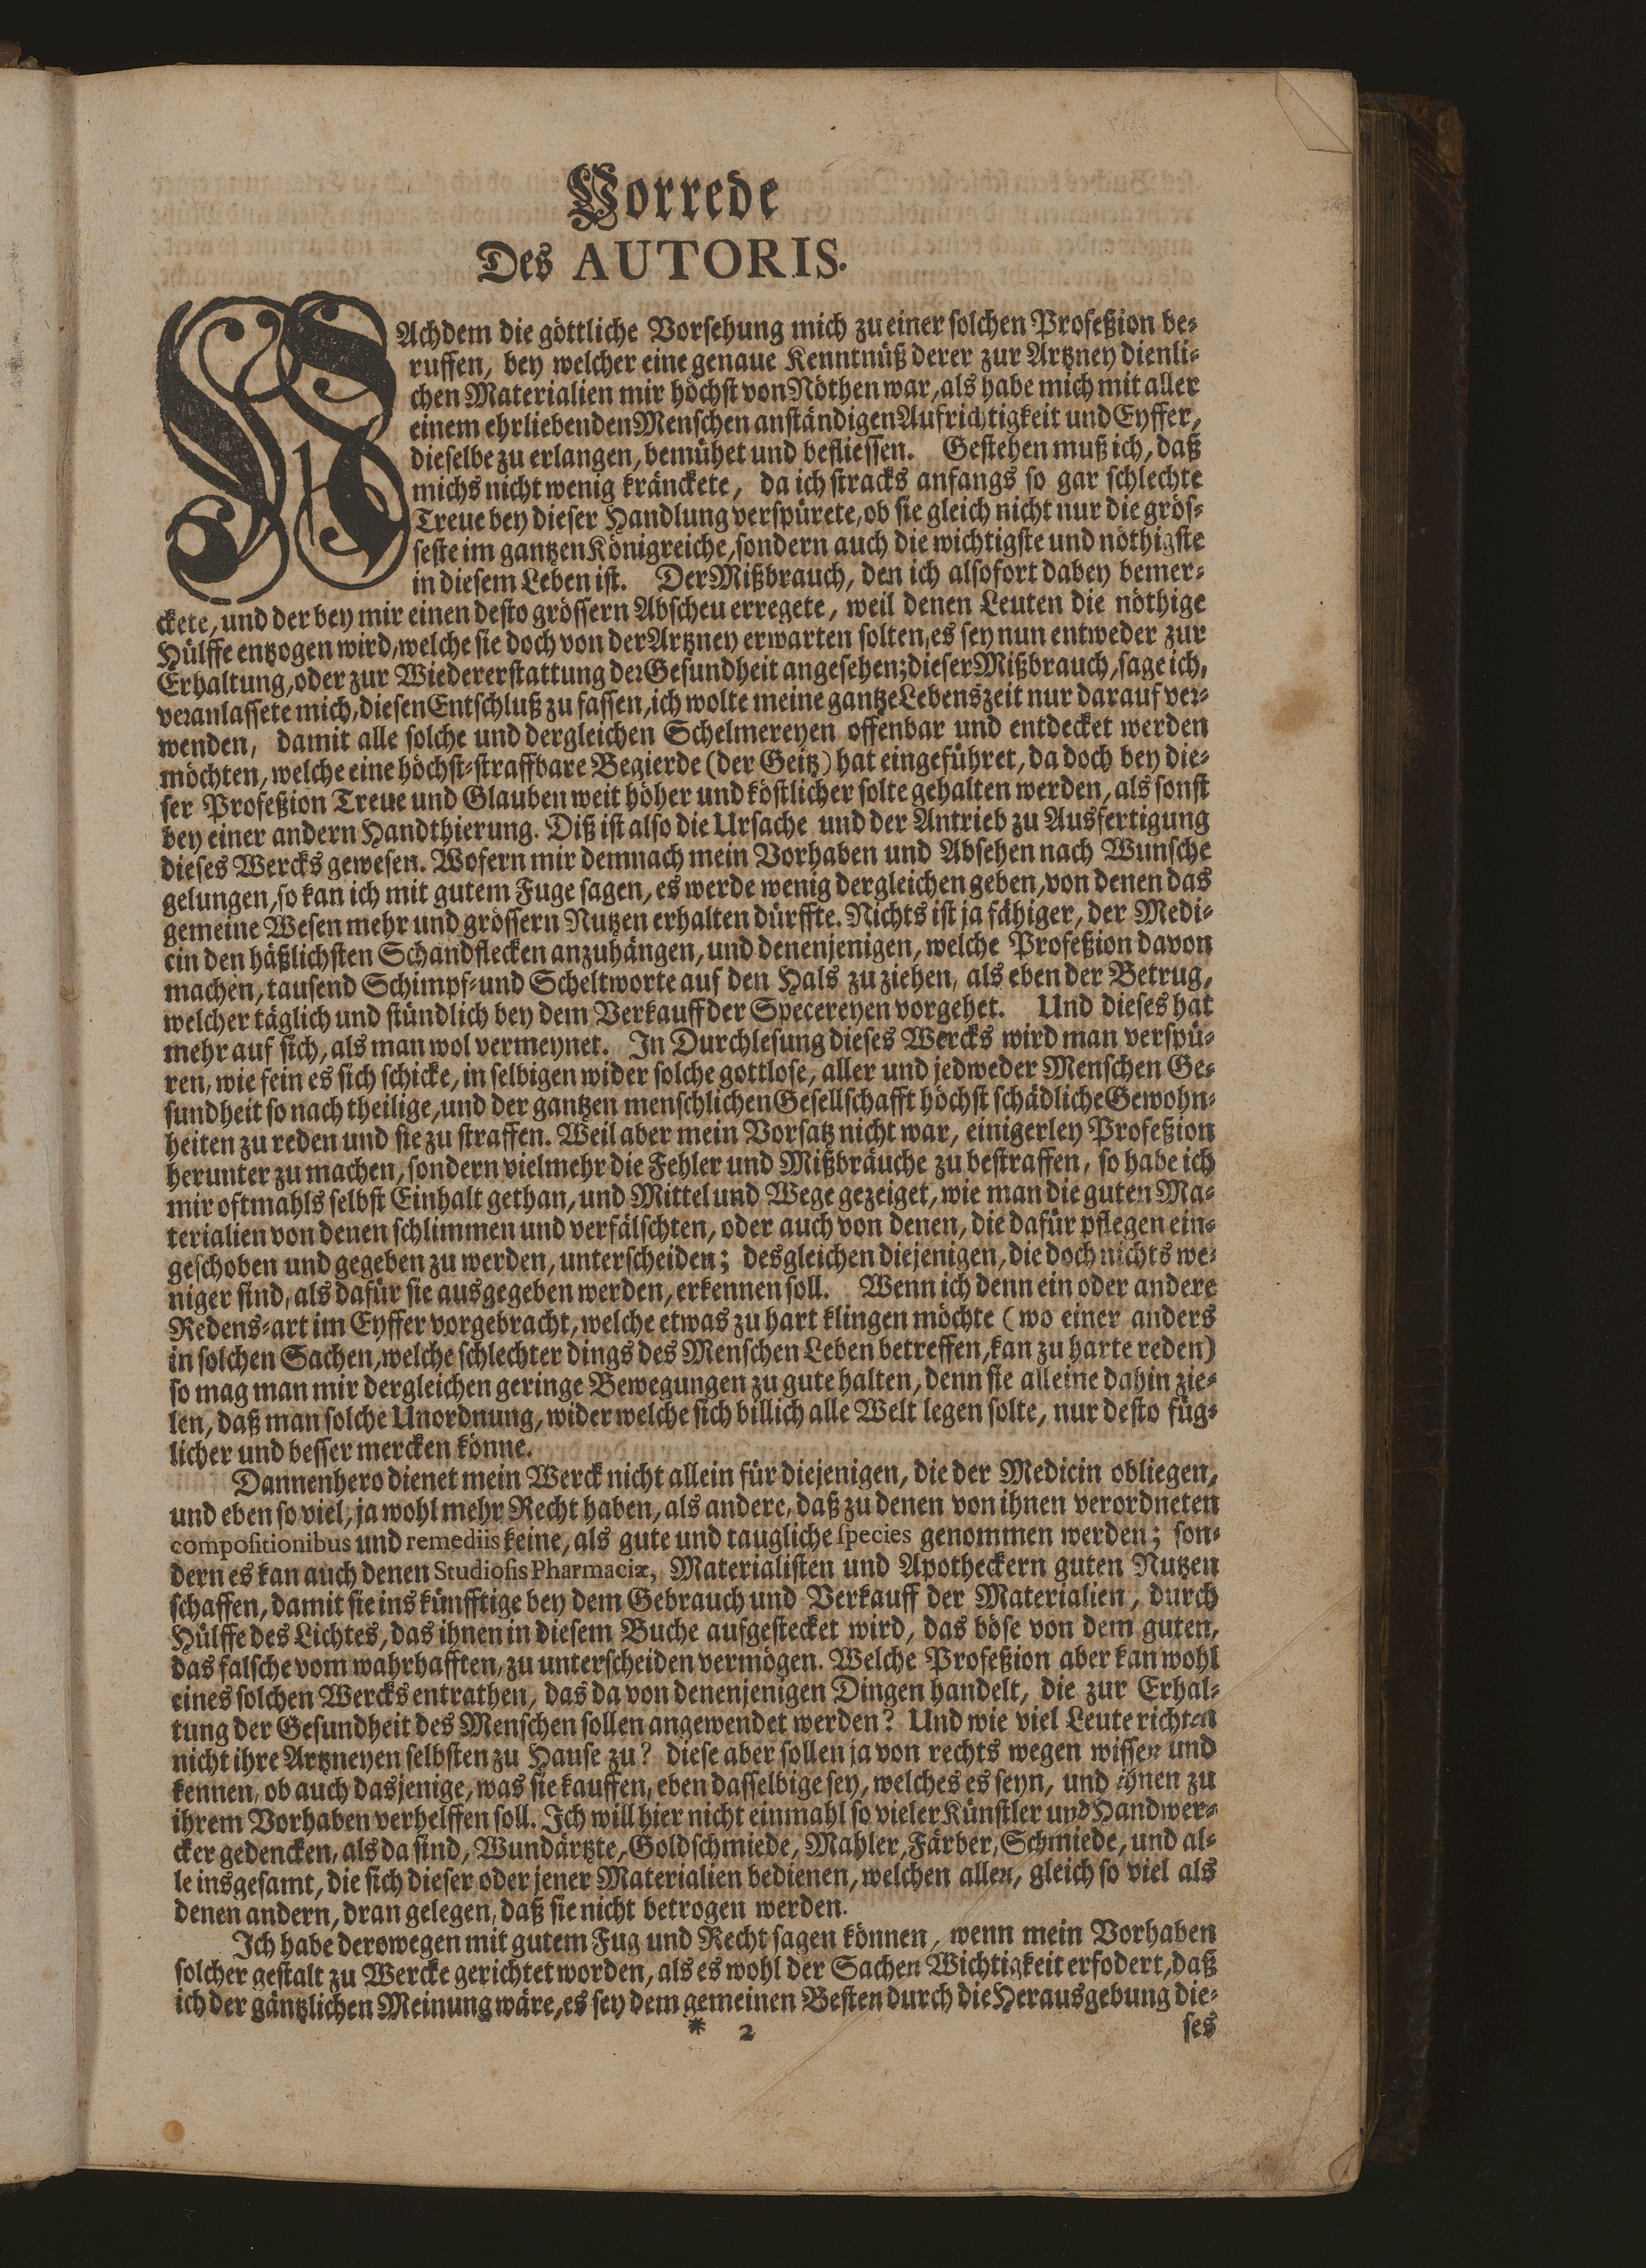 Vorrede
Des AUTORIS.
NAchdem die göttliche Vorsehung mich zu einer solchen Profeßion be-
ruffen, bey welcher eine genaue Kenntnüß derer zur Artzney dienli-
chen Materialien mir höchst von Nöthen war, als habe mich mit aller
einem ehrliebenden Menschen anständigen Aufrichtigkeit und Eyffer,
dieselbe zu erlangen, bemühet und befliessen. Gestehen muß ich, daß
michs nicht wenig kränckete, da ich stracks anfangs so gar schlechte
Treue bey dieser Handlung verspürete, ob sie gleich nicht nur die grös-
seste im gantzen Königreiche, sondern auch die wichtigste und nöthigste
in diesem Leben ist. Der Mißbrauch, den ich alsofort dabey bemer-
ckete, und der bey mir einen desto grössern Abscheu erregete, weil denen Leuten die nöthige
Hülffe entzogen wird, welche sie doch von der Artzney erwarten solten, es sey nun entweder zur
Erhaltung, oder zur Wiedererstattung der Gesundheit angesehen; dieser Mißbrauch, sage ich,
veranlassete mich, diesen Entschluß zu fassen, ich wolte meine gantze Lebenszeit nur darauf ver-
wenden, damit alle solche und dergleichen Schelmereyen offenbar und entdecket werden
möchten, welche eine höchst-straffbare Begierde (der Geitz) hat eingeführet, da doch bey die-
ser Profeßion Treue und Glauben weit höher und köstlicher solte gehalten werden, als sonst
bey einer andern Handthierung. Diß ist also die Ursache und der Antrieb zu Ausfertigung
dieses Wercks gewesen. Wofern mir demnach mein Vorhaben und Absehen nach Wunsche
gelungen, so kan ich mit gutem Fuge sagen, es werde wenig dergleichen geben, von denen das
gemeine Wesen mehr und grössern Nutzen erhalten dürffte. Nichts ist ja fähiger, der Medi-
cin den häßlichsten Schandflecken anzuhängen, und denenjenigen, welche Profeßion davon
machen, tausend Schimpf- und Scheltworte auf den Hals zu ziehen, als eben der Betrug,
welcher täglich und stündlich bey dem Verkauff der Specereyen vorgehet. Und dieses hat
mehr auf sich, als man wol vermeynet. In Durchlesung dieses Wercks wird man verspü-
ren, wie fein es sich schicke, in selbigen wider solche gottlose, aller und jedweder Menschen Ge-
sundheit so nachtheilige, und der gantzen menschlichen Gesellschafft höchst schädliche Gewohn-
heiten zu reden und sie zu straffen. Weil aber mein Vorsatz nicht war, einigerley Profeßion
herunter zu machen, sondern vielmehr die Fehler und Mißbräuche zu bestraffen, so habe ich
mir oftmahls selbst Einhalt gethan, und Mittel und Wege gezeiget, wie man die guten Ma-
terialien von denen schlimmen und verfälschten, oder auch von denen, die dafür pflegen ein-
geschoben und gegeben zu werden, unterscheiden; desgleichen diejenigen, die doch nichts we-
niger sind, als dafür sie ausgegeben werden, erkennen soll. Wenn ich denn ein oder andere
Redens-art im Eyffer vorgebracht, welche etwas zu hart klingen möchte (wo einer anders
in solchen Sachen, welche schlechter dings des Menschen Leben betreffen, kan zu harte reden)
so mag man mir dergleichen geringe Bewegungen zu gute halten, denn sie alleine dahin zie-
len, daß man solche Unordnung, wider welche sich billich alle Welt legen solte, nur desto füg-
licher und besser mercken könne.
Dannenhero dienet mein Werck nicht allein für diejenigen, die der Medicin obliegen,
und eben so viel, ja wohl mehr Recht haben, als andere, daß zu denen von ihnen verordneten
compositionibus und remediis keine, als gute und taugliche species genommen werden; son-
dern es kan auch denen Studiosis Pharmaciæ, Materialisten und Apotheckern guten Nutzen
schaffen, damit sie ins künfftige bey dem Gebrauch und Verkauff der Materialien, durch
Hülffe des Lichtes, das ihnen in diesem Buche aufgestecket wird, das böse von dem guten,
das falsche vom wahrhafften, zu unterscheiden vermögen. Welche Profeßion aber kan wohl
eines solchen Wercks entrathen, das da von denenjenigen Dingen handelt, die zur Erhal-
tung der Gesundheit des Menschen sollen angewendet werden? Und wie viel Leute richten
nicht ihre Artzneyen selbsten zu Hause zu? diese aber sollen ja von rechts wegen wissen und
kennen, ob auch dasjenige, was sie kauffen, eben dasselbige sey, welches es seyn, und ihnen zu
ihrem Vorhaben verhelffen soll. Ich will hier nicht einmahl so vieler Künstler und Handwer-
cker gedencken, als da sind, Wundärtzte, Goldschmiede, Mahler, Färber, Schmiede, und al-
le insgesamt, die sich dieser oder jener Materialien bedienen, welchen allen, gleich so viel als
denen andern, dran gelegen, daß sie nicht betrogen werden.
Ich habe derowegen mit gutem Fug und Recht sagen können, wenn mein Vorhaben
solcher gestalt zu Wercke gerichtet worden, als es wohl der Sachen Wichtigkeit erfodert, daß
ich der gäntzlichen Meinung wäre, es sey dem gemeinen Besten durch die Herausgebung die-
* 2 ses